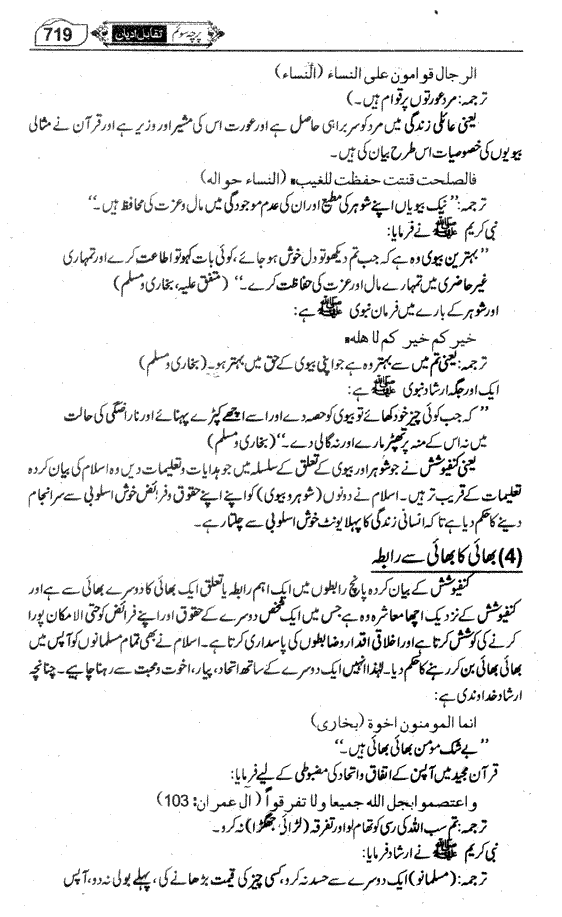 719 تقابل ادیان پرچہ سوئم
الرجال قوامون علی النساء (النساء)
ترجمہ: مرد عورتوں پر قوام ہیں۔)
یعنی عائلی زندگی میں مرد کو سربراہی حاصل ہے اور عورت اس کی مشیر اور وزیر ہے اور قرآن نے مثالی
بیویوں کی خصوصیات اس طرح بیان کی ہیں۔
فالصلحت قنتت حفظت للغیب۔ (النساء حواله)
ترجمہ: ”نیک بیویاں اپنے شوہر کی مطیع اور ان کی عدم موجودگی میں مال و عزت کی محافظ ہیں۔“
نبی کریم ﷺ نے فرمایا:
”بہترین بیوی وہ ہے کہ جب تم دیکھو تو دل خوش ہو جائے، کوئی بات کہو تو اطاعت کرے اور تمہاری
غیر حاضری میں تمہارے مال اور عزت کی حفاظت کرے۔“ (متفق علیہ، بخاری و مسلم)
اور شوہر کے بارے میں فرمان نبوی ﷺ ہے:
خیر کم خیر کم لاھله۔
ترجمہ: یعنی تم میں سے بہتر وہ ہے جو اپنی بیوی کے حق میں بہتر ہو۔ (بخاری و مسلم)
ایک اور جگہ ارشاد نبوی ﷺ ہے:
”کہ جب کوئی چیز خود کھائے تو بیوی کو حصہ دے اور اسے اچھے کپڑے پہنائے اور ناراضگی کی حالت
میں نہ اس کے منہ پر تھپڑ مارے اور نہ گالی دے۔“ (بخاری و مسلم)
یعنی کنفیوشش نے جو شوہر اور بیوی کے تعلق کے سلسلہ میں جو ہدایات و تعلیمات دیں وہ اسلام کی بیان کردہ
تعلیمات کے قریب تر ہیں۔ اسلام نے دونوں (شوہر و بیوی) کو اپنے اپنے حقوق و فرائض خوش اسلوبی سے سرانجام
دینے کا حکم دیا ہے تاکہ انسانی زندگی کا پہلا یونٹ خوش اسلوبی سے چلتا رہے۔
(4) بھائی کا بھائی سے رابطہ
کنفیوشش کے بیان کردہ پانچ رابطوں میں ایک اہم رابطہ یا تعلق ایک بھائی کا دوسرے بھائی سے ہے اور
کنفیوشش کے نزدیک اچھا معاشرہ وہ ہے جس میں ایک شخص دوسرے کے حقوق اور اپنے فرائض کو حتی الامکان پورا
کرنے کی کوشش کرتا ہے اور اخلاقی اقدار و ضابطوں کی پاسداری کرتا ہے۔ اسلام نے بھی تمام مسلمانوں کو آپس میں
بھائی بھائی بن کر رہنے کا حکم دیا۔ لہٰذا انہیں ایک دوسرے کے ساتھ اتحاد، پیار، اخوت و محبت سے رہنا چاہیے۔ چنانچہ
ارشاد خداوندی ہے:
انما المومنون اخوة (بخاری)
”بے شک مومن بھائی بھائی ہیں۔“
قرآن مجید میں آپس کے اتفاق و اتحاد کی مضبوطی کے لیے فرمایا:
واعتصموا بجل الله جمیعا ولا تفرقواً (ال عمران: 103)
ترجمہ: تم سب اللہ کی رسی کو تھام لو اور تفرقہ (لڑائی جھگڑا) نہ کرو۔
نبی کریم ﷺ نے ارشاد فرمایا:
ترجمہ: (مسلمانو) ایک دوسرے سے حسد نہ کرو، کسی چیز کی قیمت بڑھانے کی، پہلے بولی نہ دو، آپس